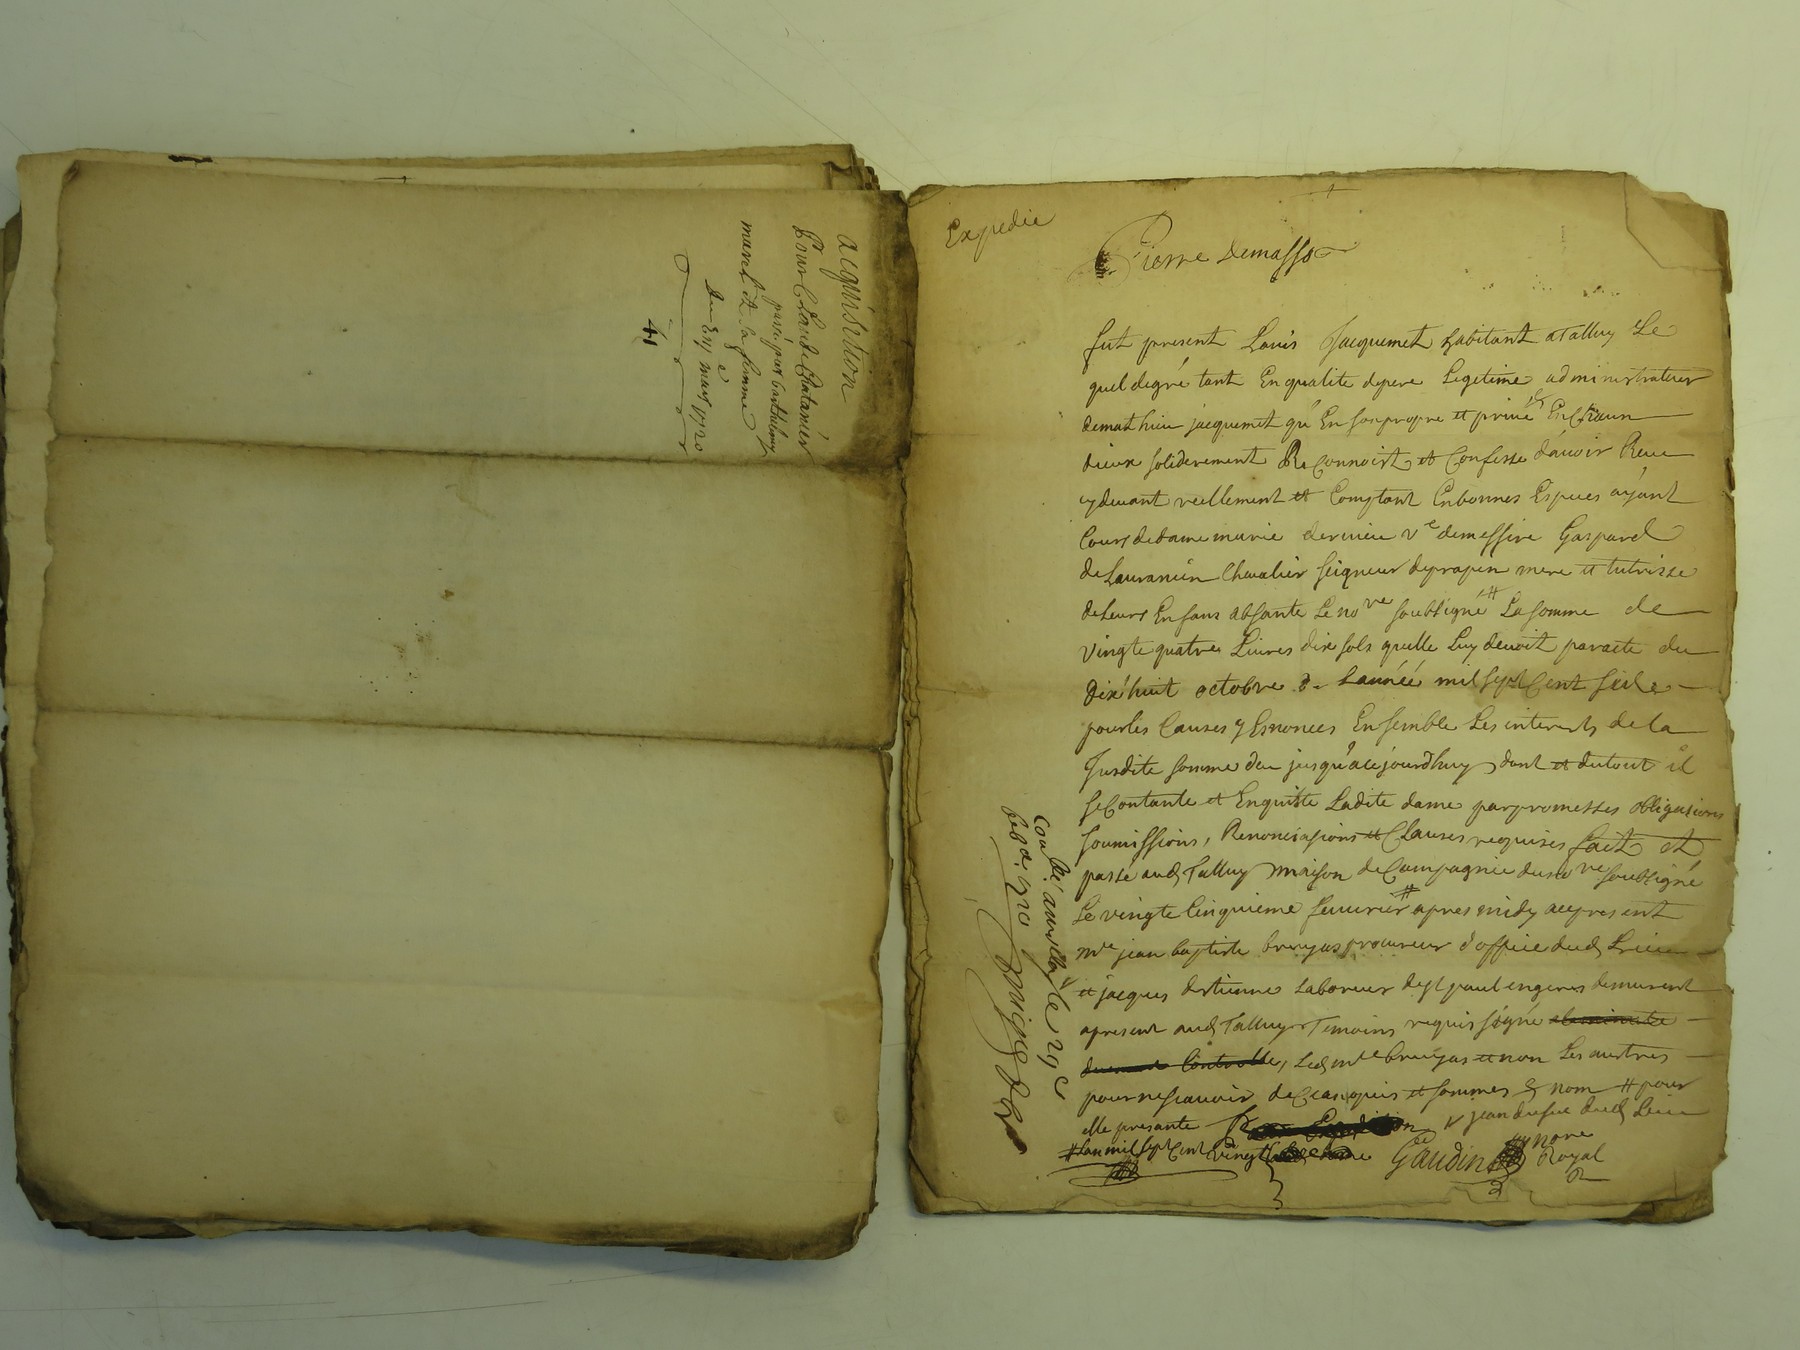 acquisition
Pour Claude Chatanier
passé par barthelemy
maret et sa femme
Du Exj mars 1720
41
Expedie
Pierre Demasso
fut present Louis Jacquemet habitant a Talluy Le
quel degré tant En qualite depere Legetime administrateur
demathieu jacquemet qu'En son propre et privé Et En Chacun
dieux soliderement Reconnoist et Confesse d'avoir Receu
cydevant reellement et Comptant Enbonnes Especes ayant
Cours dedame marie dervieu ve demessire Gaspard
de Laurancin Chevalier seigneur deprapin mere et tutrisse
deleurs Enfans absante Le nore soubsigné # La somme de
vingte quatre Livres dix sols quelle Luy devoit paracte du
dix'huit octobre de Lannéé mil sept Cent seile
pourles Causes y Esnoncees Ensemble Les interests de la
susdite somme deu jusqu'acejourdhuy dont et dutout il
se Contante et Enquitte Ladite dame parpromesses obligasions
soumissions, Renonciasions et Clauses requises fait et
passé aud Talluy maison de Campagnie dunore soubsigné
Le vingte Cinquieme fevurier # apres midy acepresent
me jean baptiste bruyas procureur d'office dud Lieu
et jacques destienne Laboreur de st paul en demurant
apresent aud Talluy Temoins requis signé
Led me bruyas et non Les austres
pour ne scavoir de Ce enquis et sommes & nom # pour
elle presante jean dud Lieu
# Lan mil sept Cent vingt Gaudin nore
Royal
Con le 29e